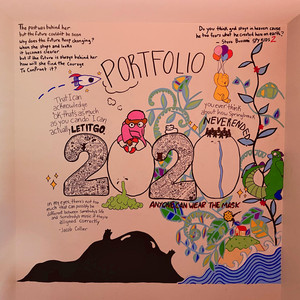 The past was behind her
but the future couldn't be seen
why does the future keep changing?
when she stops and looks
it becomes clear
but if the future is always behind her
how will she find the courage
to confront it?
Do you think God stays in heaven cause
he too fears what he created here on earth?
- Steve Buscemi SPY KIDS 2
PORTFOLIO
That I can
acknowledge
as you can do. I can
actually LET IT GO.
you ever think
about how Springtrap
NEVER ENDS
2020
ANYONE CAN WEAR THE MASK
in my eyes, there's not too
much that can possibly be
different between somebody's life
and somebody's music if they're
aligned correctly
- Jacob Collier